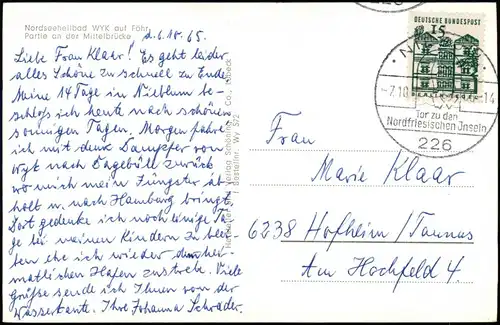 Nordseeheilbad WYK auf Föhr
Partie an der Mittelbrücke
d. 6.10.65.
Liebe Frau Klaar! Es geht leider
alles Schöne zu schnell zu Ende.
Meine 14 Tage in Nieblum be-
schloß ich heute nach schönen
sonnigen Tagen. Morgen fahre
ich mit dem Dampfer von
Wyk nach Dagebüll zurück
wo mich mein Jüngster ab-
holt u. nach Hamburg bringt.
Dort gedenke ich noch einige Ta-
ge bei meinen Kindern zu blei-
ben ehe ich wieder dem hei-
matlichen Hafen zustrebe. Viele
Grüße sende ich Ihnen von der
Wasserkante. Ihre Johanna Schrader.
Bestellnr. Wy 572
DEUTSCHE BUNDESPOST
15
-7.10.
-14
Tor zu den
Nordfriesischen Inseln
226
Frau
Marie Klaar
6238 Hofheim/Taunus
Am Hochfeld 4.